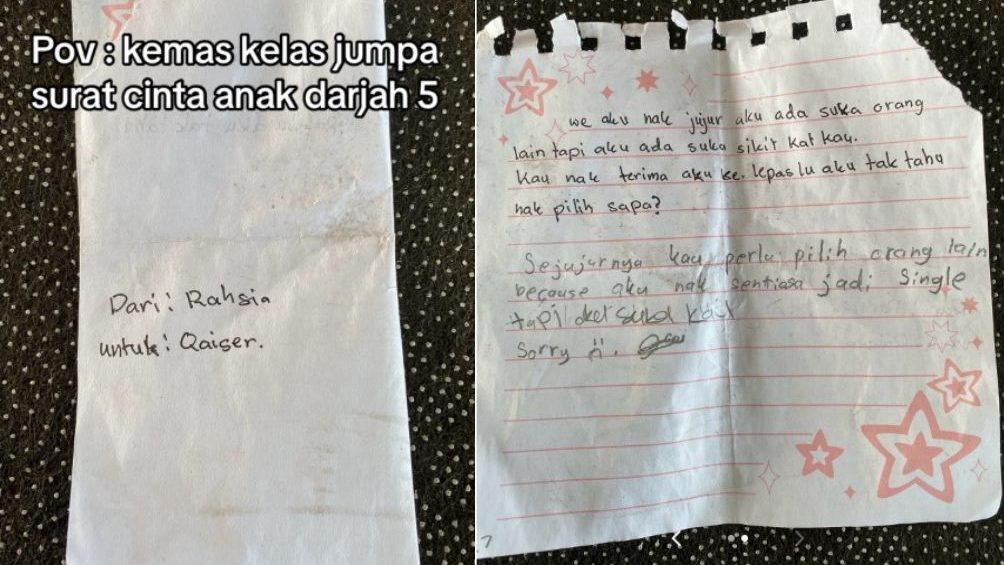 Pov : kemas kelas jumpa
surat cinta anak darjah 5
Dari : Rahsia
untuk : Qaiser.
we aku nak jujur aku ada suka orang
lain tapi aku ada suka sikit kat kau.
Kau nak terima aku ke. lepas lu aku tak tahu
nak pilih sapa?
Sejujurnya kau perlu pilih orang lain
because aku nak sentiasa jadi single
tapi
Sorry
7